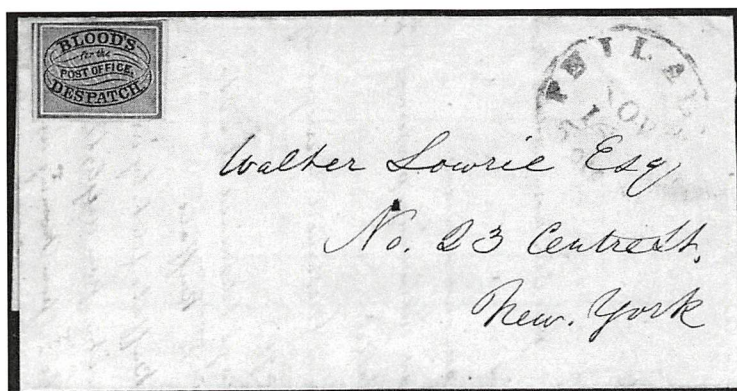 BLOOD'S
for the
POST OFFICE.
DESPATCH.
PHILAD
NOV
Walter Lowrie Esq
No. 23 Centre St.
New. York